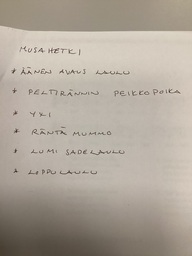 MUSAHETKI
* ÄÄNEN AVAUS LAULU
* PELTIRÄNNIN PEIKKOPOIKA
* YKI
* RÄNTÄ MUMMO
* LUMI SADELAULU
* LOPPULAULU